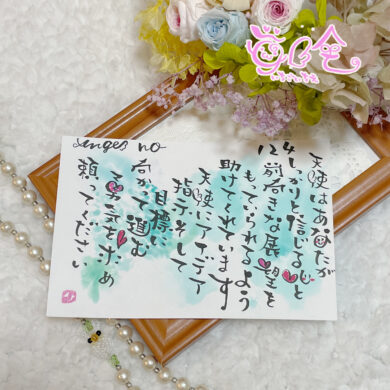 天使はあなたが
しっかりと信じる心と
前向きな展望を
もてられるよう
助けてくれています
天使にアイデア
指示そして
目標に
向かって進む
勇気
頼ってください
no